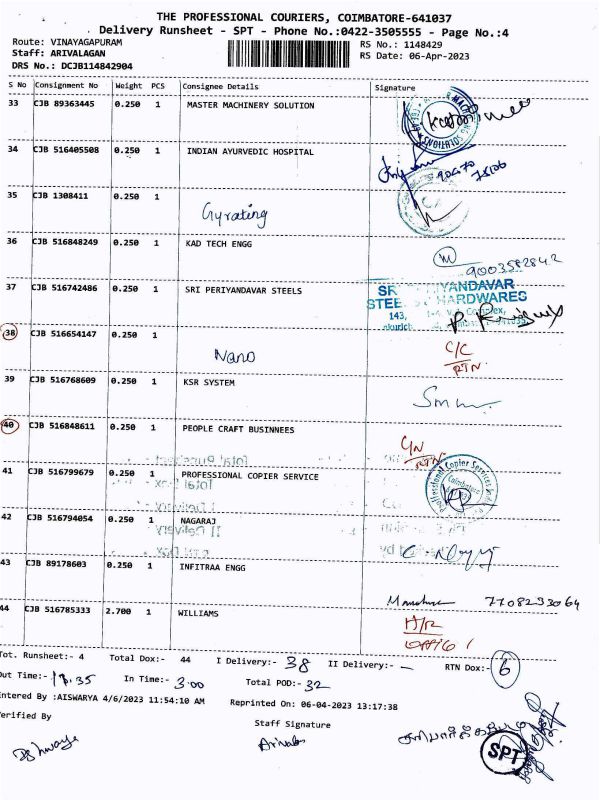 THE PROFESSIONAL COURIERS, COIMBATORE-641037
Delivery Runsheet - SPT - Phone No.:0422-3505555 - Page No.:4
Route: VINAYAGAPURAM
RS No.: 1148429
Staff: ARIVALAGAN
RS Date: 06-Apr-2023
DRS No.: DCJB114842904
S No Consignment No Weight PCS Consignee Details Signature
33 CJB 89363445 0.250 1 MASTER MACHINERY SOLUTION
34 CJB 516405508 0.250 1 INDIAN AYURVEDIC HOSPITAL
35 CJB 1308411 0.250 1
Gyrating
36 CJB 516848249 0.250 1 KAD TECH ENGG
9003592842
37 CJB 516742486 0.250 1 SRI PERIYANDAVAR STEELS
38 CJB 516654147 0.250 1
Nano
C/C
RTN
39 CJB 516768609 0.250 1 KSR SYSTEM
40 CJB 516848611 0.250 1 PEOPLE CRAFT BUSINNEES
RTN
41 CJB 516799679 0.250 1 PROFESSIONAL COPIER SERVICE
42 CJB 516794054 0.250 1 NAGARAJ
43 CJB 89178603 0.250 1 INFITRAA ENGG
7708233064
44 CJB 516785333 2.700 1 WILLIAMS
Tot. Runsheet:- 4 Total Dox:- 44 I Delivery:- 38 II Delivery:- – RTN Dox:- 6
Out Time:- In Time:- 3.00 Total POD:- 32
Entered By :AISWARYA 4/6/2023 11:54:10 AM Reprinted On: 06-04-2023 13:17:38
Verified By Staff Signature
SPT